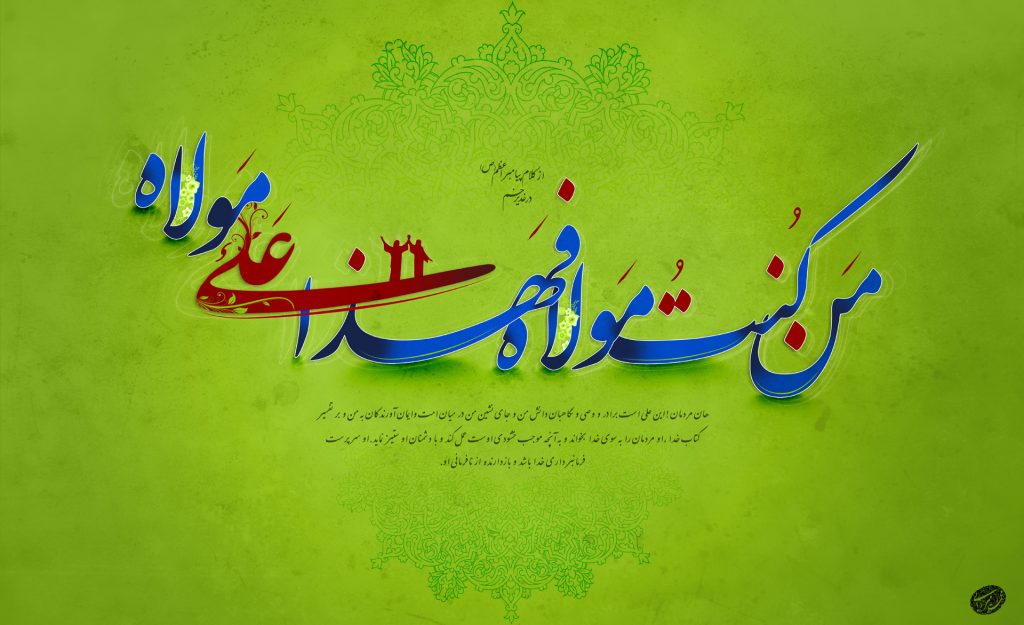 از کلام پیامبر اعظم(ص)
در غدیر خم
مَن كُنتُ مَولاه فَهذا عَلی مَولاه
هان مردمان! این علی است برادر و وصی و نگاهبان دانش من و جای نشین من در میان امت و ایمان آورندگان به من و بر تفسیر
کتاب خدا، او مردمان را به سوی خدا بخواند و به آنچه موجب خشنودی اوست عمل کند و با دشمنان او ستیز نماید. او سرپرست
فرمانبرداری خدا باشد و بازدارنده از نافرمانی او.